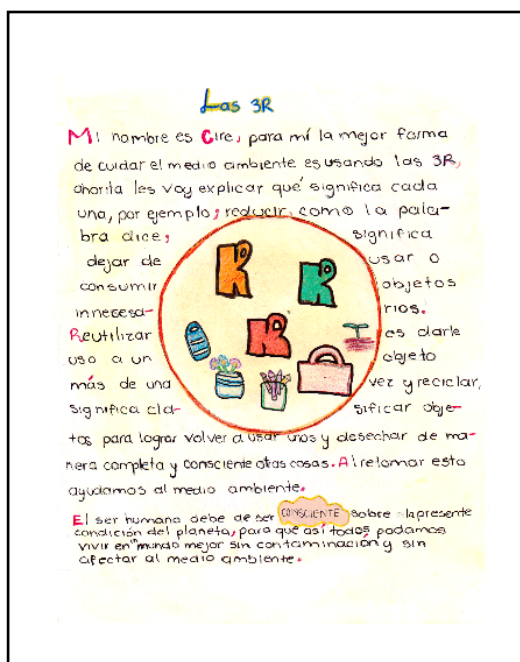 Las 3R
Mi nombre es Cire, para mí la mejor forma
de cuidar el medio ambiente es usando las 3R,
ahorita les voy explicar qué significa cada
una, por ejemplo; reducir, como la pala-
bra dice; significa
dejar de usar o
consumir objetos
innecesa- rios.
Reutilizar es darle
uso a un objeto
más de una vez y reciclar,
significa cla- sificar obje-
tos para lograr volver a usar unos y desechar de ma-
nera completa y consciente otas cosas. Al retomar esto
ayudamos al medio ambiente.
El ser humano debe de ser CONSCIENTE sobre la presente
condición del planeta, para que así todos podamos
vivir en un mundo mejor sin contaminación y sin
afectar al medio ambiente.
R
R
R